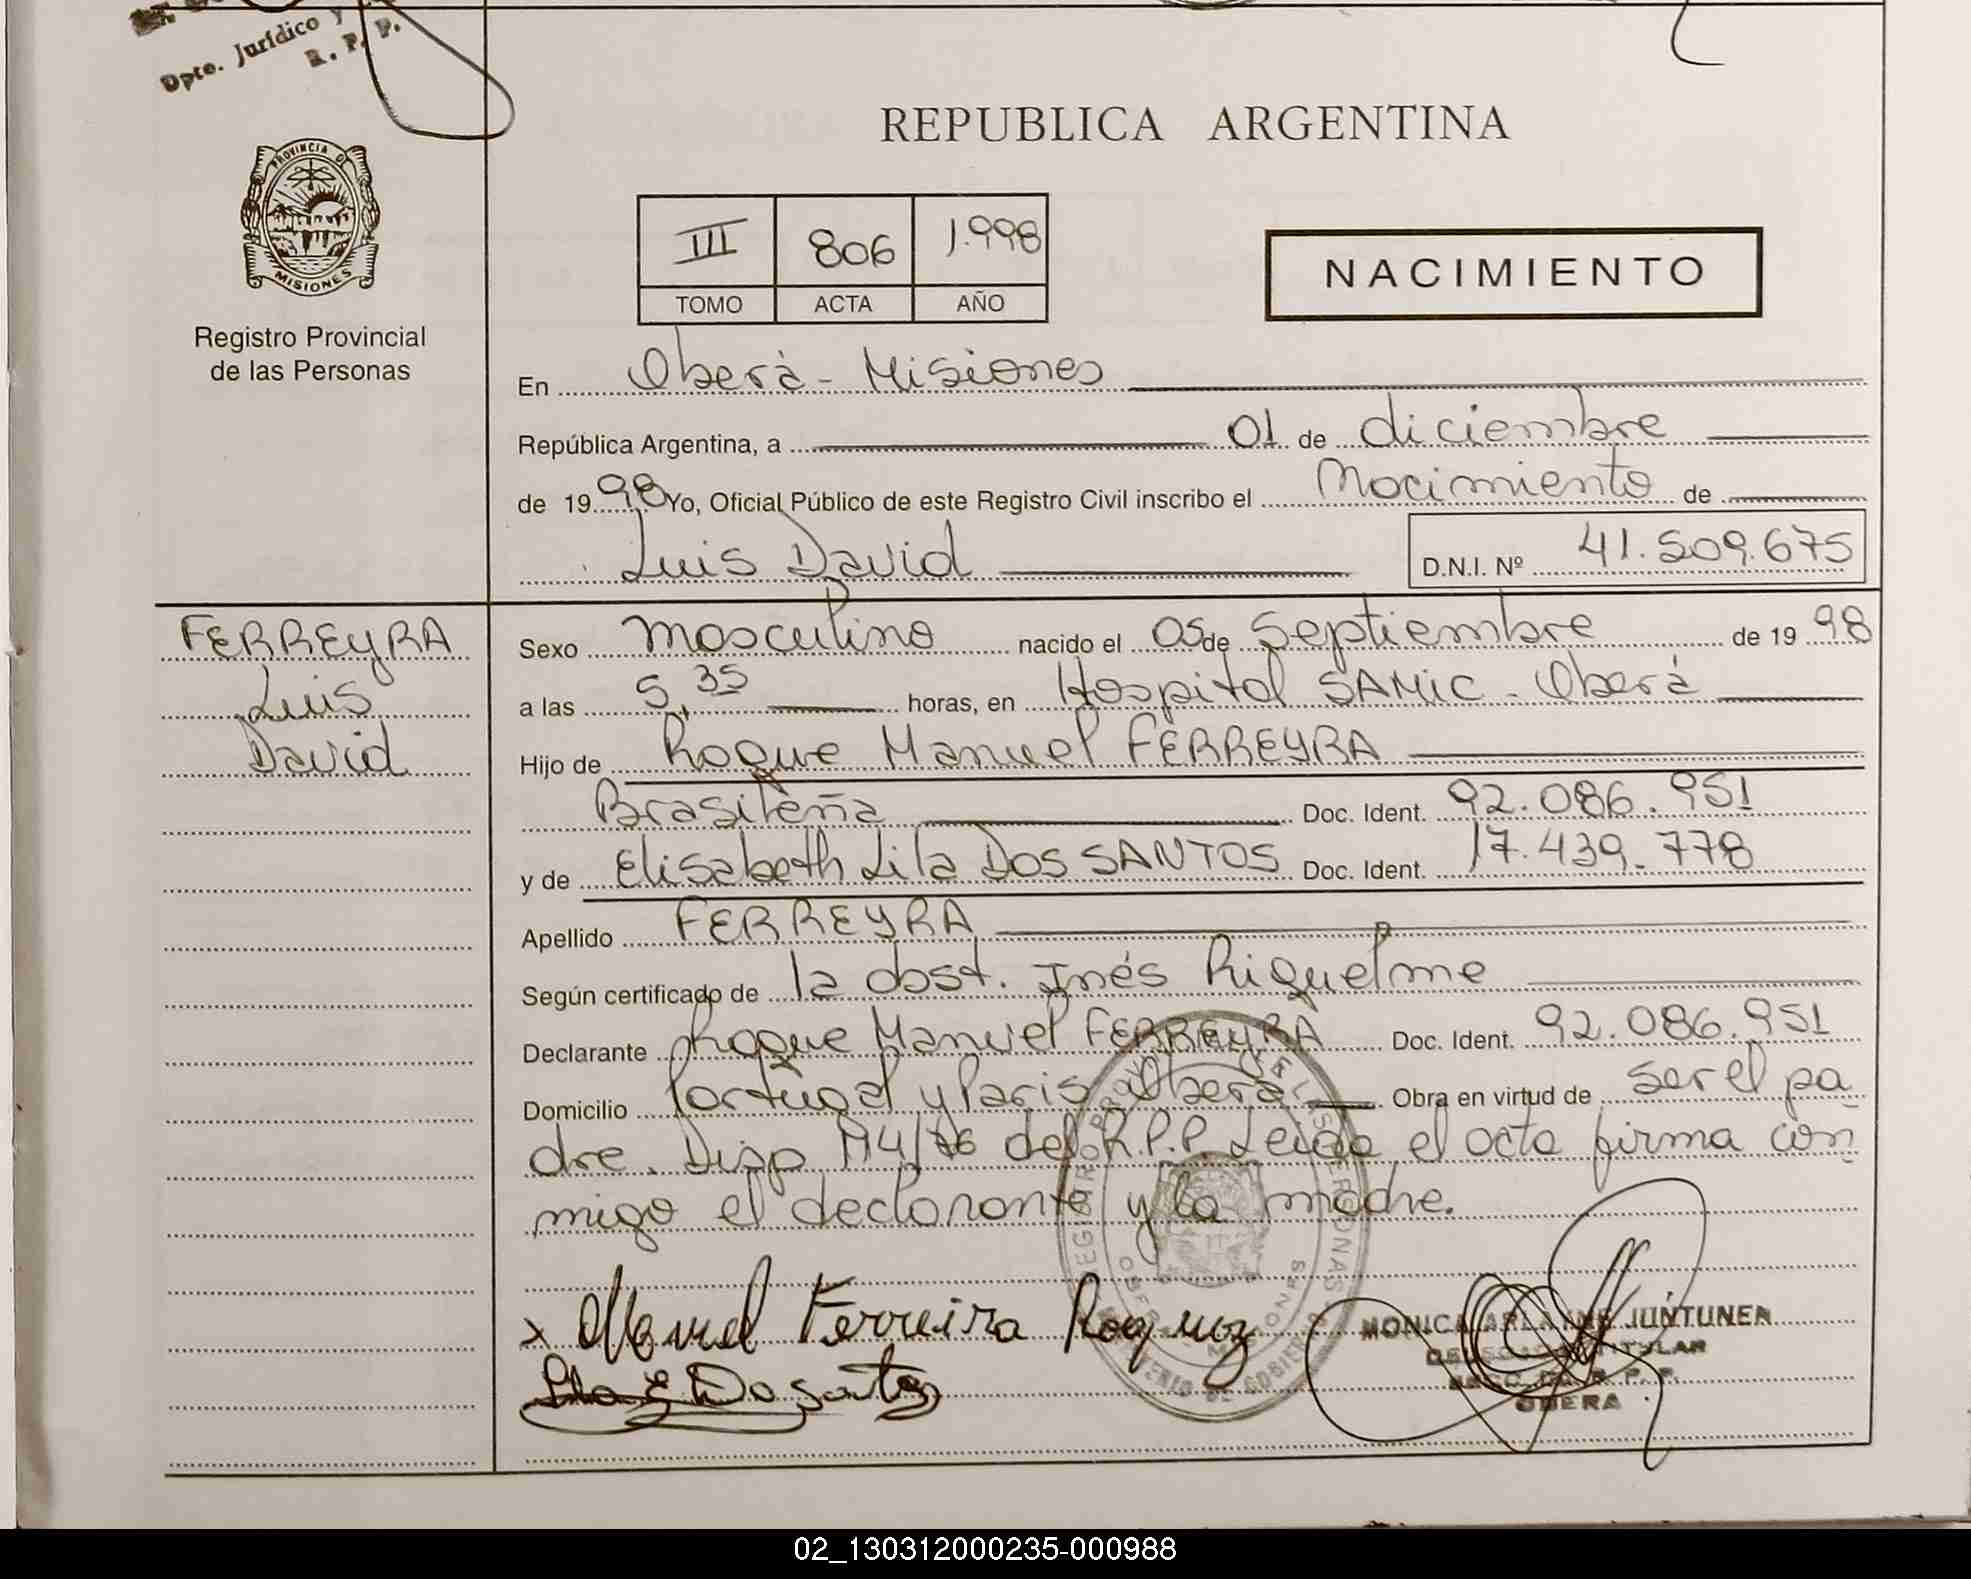 Dpto. Jurídico y
R. P. P.
REPUBLICA ARGENTINA
PROVINCIA DE
MISIONES
Registro Provincial
de las Personas
III 806 1.998
TOMO ACTA AÑO
NACIMIENTO
En Oberá - Misiones
República Argentina, a 01 de diciembre
de 1998 Yo, Oficial Público de este Registro Civil inscribo el Nacimiento de
Luis David D.N.I. Nº 41.509.675
FERREYRA
Luis
David
Sexo masculino nacido el 05 de Septiembre de 1998
a las 5,35 horas, en Hospital SAMIC - Oberá
Hijo de Roque Manuel FERREYRA
Brasileña Doc. Ident. 92.086.951
y de Elisabeth Lila DOS SANTOS Doc. Ident. 17.439.778
Apellido FERREYRA
Según certificado de la obst. Inés Riquelme
Declarante Roque Manuel FERREYRA Doc. Ident. 92.086.951
Domicilio Portugal y Paris Oberá Obra en virtud de ser el pa
dre. Disp 114/76 del R.P.P. Leida el acta firma con
migo el declarante y la madre.
x Manuel Ferreira Roque
MONICA ARLAINE JUNTUNEN
TITULAR
R. P. P.
OBERA
02_130312000235-000988